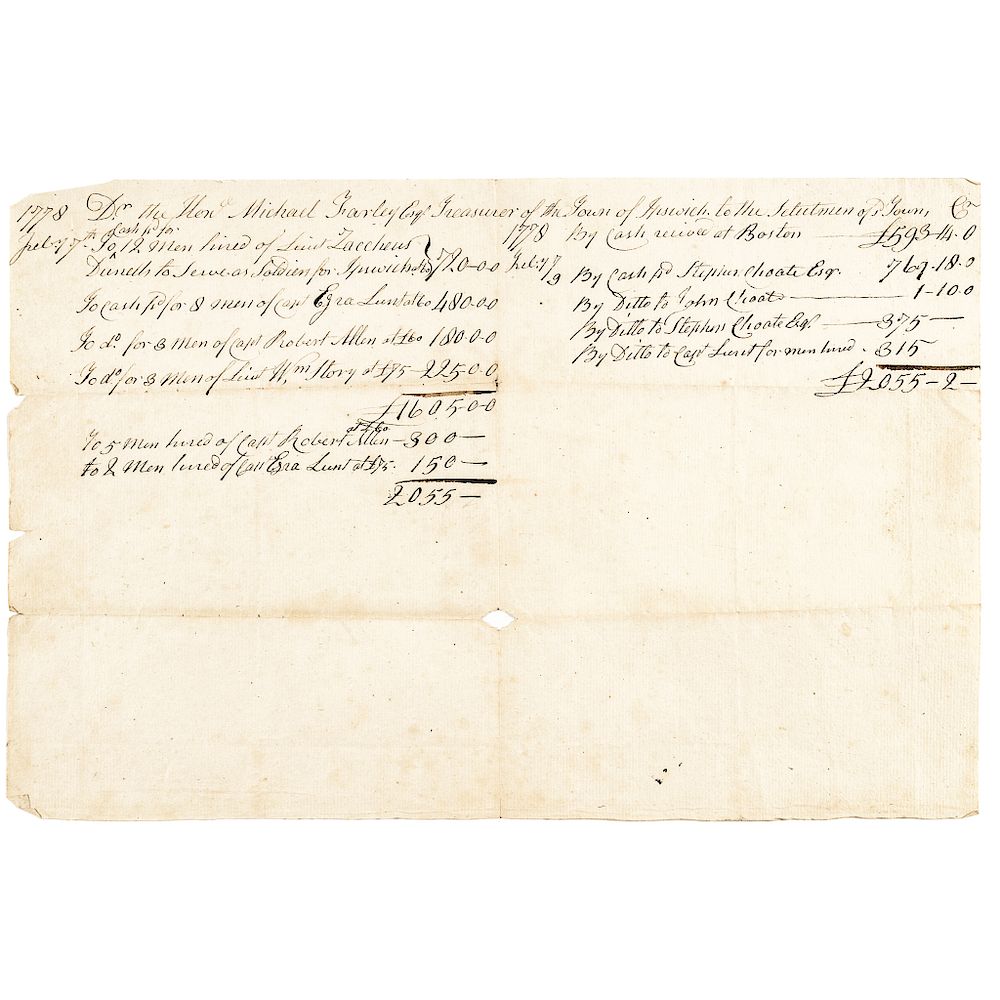 1778 Dr. the Hono. Michael Farley Esqr. Treasurer of the Town of Ipswich to the Selectmen of sd. Town, Cr
Cash pd for
To 12 Men hired of Lieut Zaccheus
Dunnels to Serve as Soldiers for Ipswich 720-0-0
To Cash pd. for 8 men of Capt Ezra Lunt at 60 480-0-0
To do. for 3 Men of Capt Robert Allen at £60 180-0-0
To do. for 3 Men of Lieut Wm. Story at £75 - 225-0-0
£1605-0-0
at £60
To 5 Men hired of Capt Robert Allen - 300 -
to 2 Men hired of Capt Ezra Lunt at £75. 150 -
2055 -
1778 By Cash receive at Boston £593-4-0
By Cash pd Stephen Choate Esqr. 769-18-0
By Ditto to John Choate 1-10-0
By Ditto to Stephen Choate Esqr. 375 -
By Ditto to Capt Lunt for men hired - 315
£2055-2-